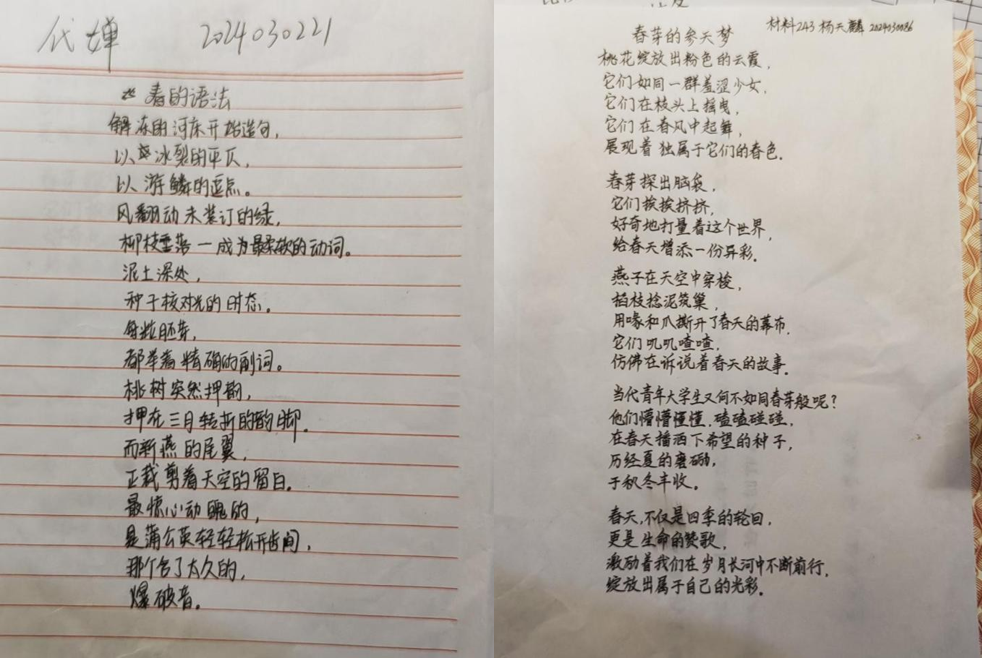 代婵 2024030221
春的语法
解冻的河床开始造句，
以冰裂的平仄，
以游鳞的逗点。
风翻动未装订的绿，
柳枝垂落—成为最柔软的动词。
泥土深处，
种子核对光的时态。
每粒胚芽，
都举着精确的副词。
桃树突然押韵，
押在三月转折的韵脚。
而新燕的尾翼，
正裁剪着天空的留白。
最惊心动魄的，
是蒲公英轻轻松开齿间，
那个含了太久的，
爆破音。
材料243 杨天麟 2024030086
春芽的参天梦
桃花绽放出粉色的云霞，
它们如同一群羞涩少女，
它们在枝头上摇曳，
它们在春风中起舞，
展现着独属于它们的春色。
春芽探出脑袋，
它们挨挨挤挤，
好奇地打量着这个世界，
给春天增添一份异彩。
燕子在天空中穿梭，
拾枝捻泥筑巢，
用喙和爪撕开了春天的幕布，
它们叽叽喳喳，
仿佛在诉说着春天的故事。
当代青年大学生又何不如同春芽般呢？
他们懵懵懂懂，磕磕碰碰，
在春天播洒下希望的种子，
历经夏的磨砺，
于秋冬丰收。
春天，不仅是四季的轮回，
更是生命的赞歌，
激励着我们在岁月长河中不断前行，
绽放出属于自己的光彩。